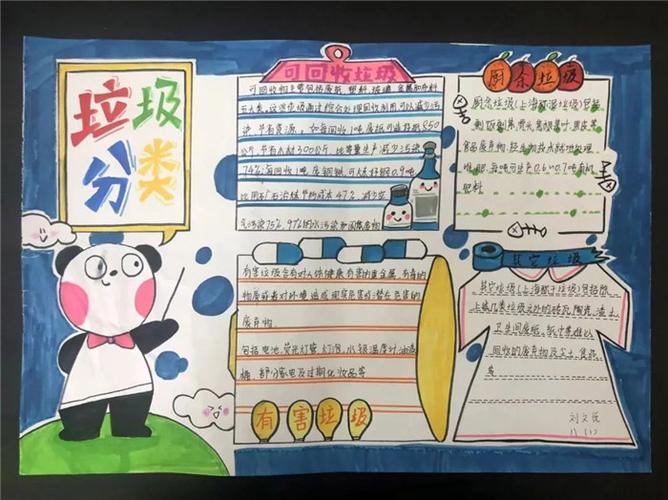 垃圾
分类
可回收垃圾
可回收物主要包括废纸、塑料、玻璃、金属和布料
五大类,这些垃圾通过综合处理回收利用可以减少污
染,节省资源。如每回收1吨废纸可造好纸850
公斤,节省木材300公斤,比等量生产减少污染
74%;每回收1吨废钢铁可炼好钢0.9吨
比用矿石冶炼节约成本47%,减少空
气污染75%,97%的水污染和固体废物
厨余垃圾
厨余垃圾(上海称湿垃圾)包括
剩饭剩菜、骨头、菜根菜叶、果皮等
食品废弃物,经生物技术就地处理
堆肥,每吨可生产0.6~0.7吨有机
肥料
有害垃圾含有对人体健康有害的重金属、有毒的
物质或者对环境造成现实危害或潜在危害的
废弃物
包括电池、荧光灯管、灯泡、水银温度计、油漆
桶、部分家电及过期化妆品等
有害垃圾
其它垃圾
其它垃圾(上海称干垃圾)包括除
上述几类垃圾之外的砖瓦陶瓷、渣土、
卫生间废纸、纸巾等难以
回收的废弃物及尘土、食品
等